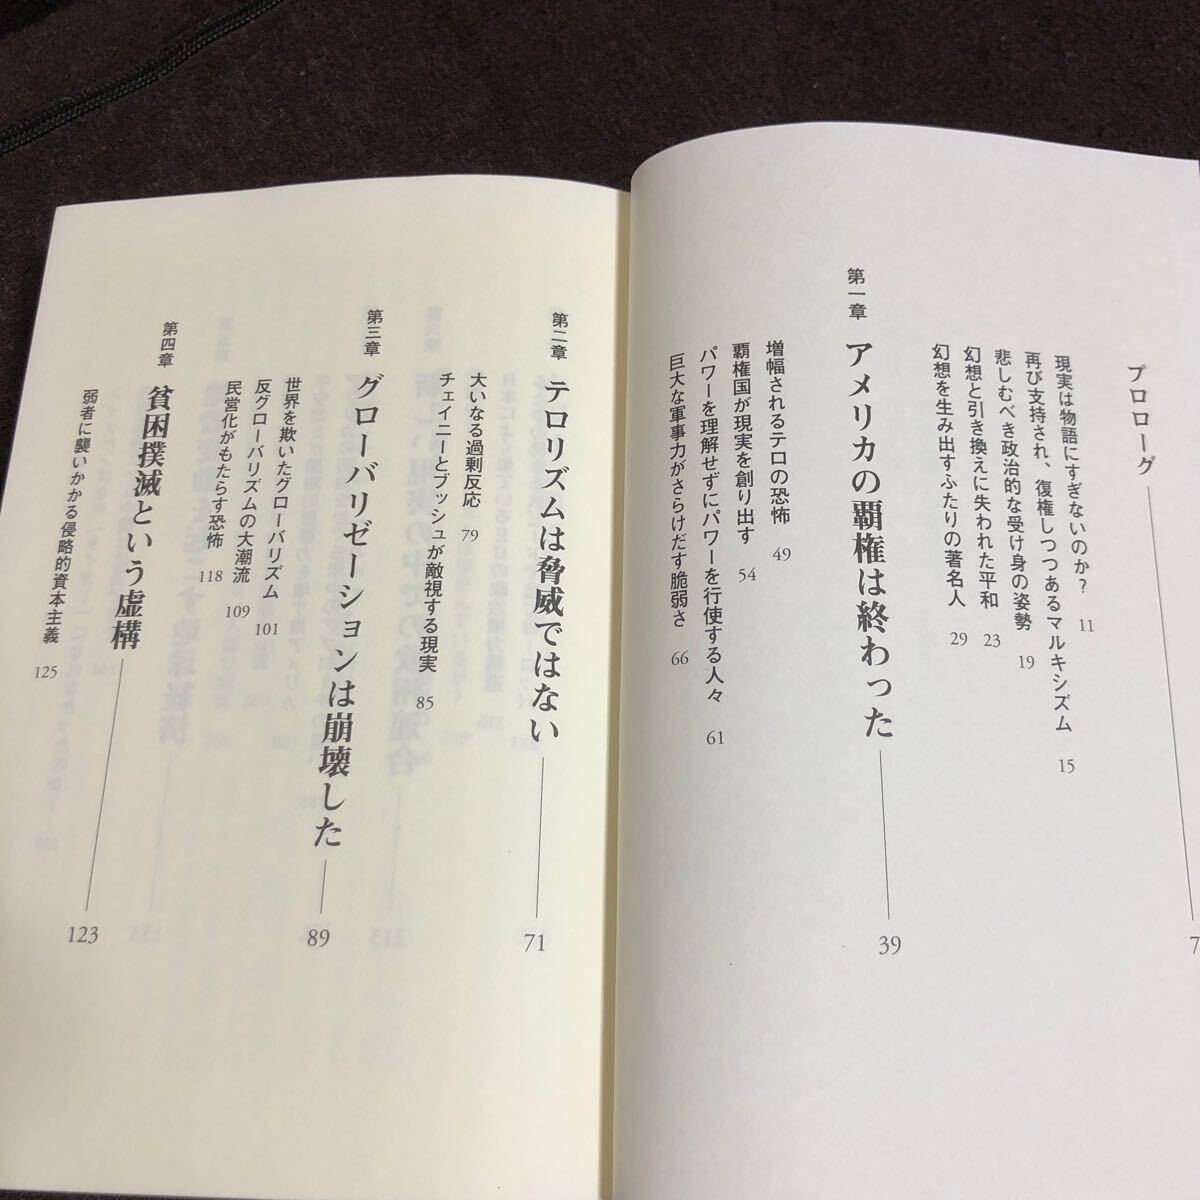 プロローグ 7
現実は物語にすぎないのか? 11
再び支持され、復権しつつあるマルキシズム 15
悲しむべき政治的な受け身の姿勢 19
幻想と引き換えに失われた平和 23
幻想を生み出すふたりの著名人 29
第一章 アメリカの覇権は終わった 39
増幅されるテロの恐怖 49
覇権国が現実を創り出す 54
パワーを理解せずにパワーを行使する人々 61
巨大な軍事力がさらけだす脆弱さ 66
第二章 テロリズムは脅威ではない 71
大いなる過剰反応 79
チェイニーとブッシュが敵視する現実 85
第三章 グローバリゼーションは崩壊した 89
世界を欺いたグローバリズム 101
反グローバリズムの大潮流 109
民営化がもたらす恐怖 118
第四章 貧困撲滅という虚構 123
弱者に襲いかかる侵略的資本主義 125